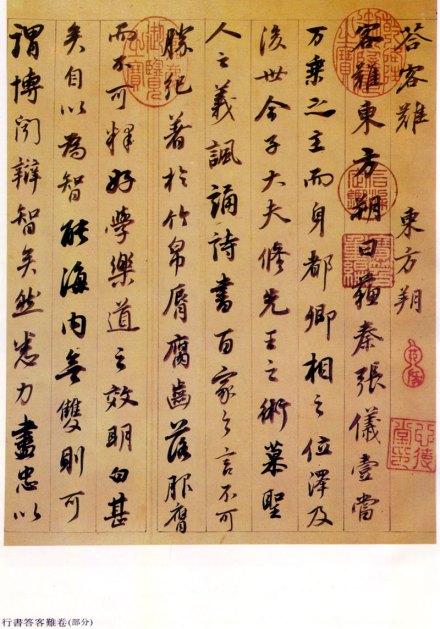 答客難 東方朔
客難東方朔曰蘇秦張儀壹當
万乘之主而身都卿相之位澤及
後世今子大夫修先王之術慕聖
人之義諷誦詩書百家之言不可
勝紀著於竹帛脣腐齒落服膺
而不可釋好學樂道之效明白甚
矣自以為智能海內無雙則可
謂博聞辯智矣然悉力盡忠以
行書答客難卷(部分)